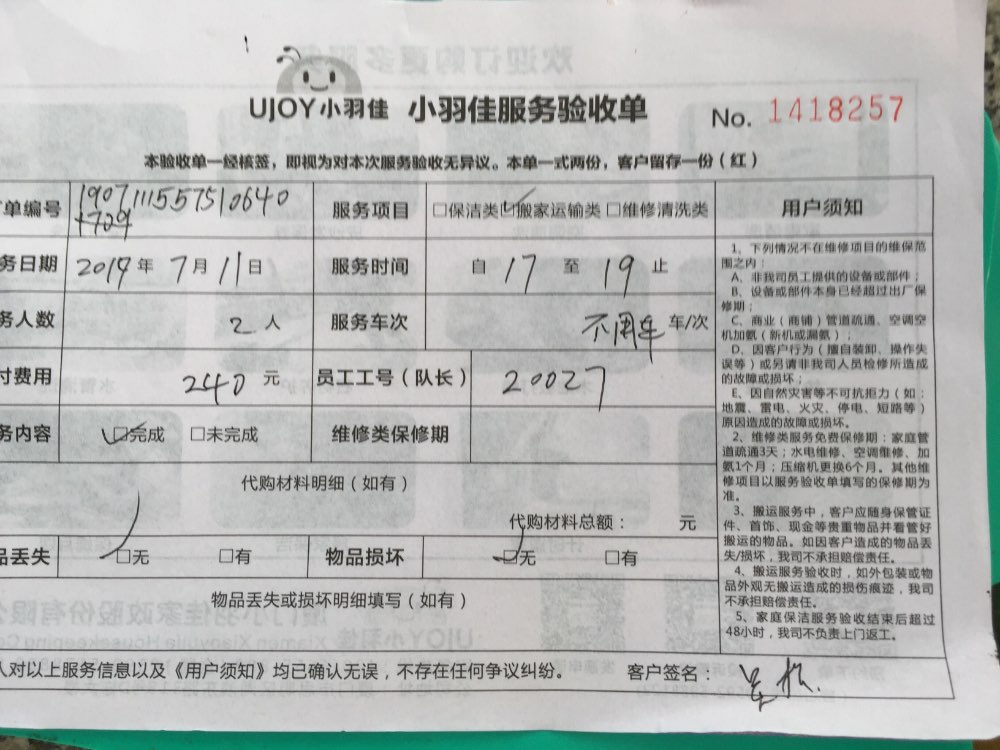 UJOY小羽佳 小羽佳服务验收单 No. 1418257
本验收单一经核签，即视为对本次服务验收无异议。本单一式两份，客户留存一份（红）
单编号 1907111557510640 服务项目 □保洁类 □搬家运输类 □维修清洗类
务日期 2019年 7月 11日 服务时间 自 17 至 19 止
务人数 2 人 服务车次 不用车 车/次
付费用 240 元 员工工号（队长） 20027
务内容 □完成 □未完成 维修类保修期
代购材料明细（如有）
代购材料总额： 元
品丢失 □无 □有 物品损坏 □无 □有
物品丢失或损坏明细填写（如有）
人对以上服务信息以及《用户须知》均已确认无误，不存在任何争议纠纷。 客户签名：
用户须知
1、下列情况不在维修项目的维保范
围之内：
A、非我司员工提供的设备或部件；
B、设备或部件本身已经超过出厂保
修期；
C、商业（商铺）管道疏通、空调空
机加氨（新机或漏氨）；
D、因客户行为（擅自装卸、操作失
误等）或另请非我司人员检修所造成
的故障或损坏；
E、因自然灾害等不可抗拒力（如：
地震、雷电、火灾、停电、短路等）
原因造成的故障或损坏。
2、维修类服务免费保修期：家庭管
道疏通3天；水电维修、空调维修、加
氨1个月；压缩机更换6个月。其他维
修项目以服务验收单填写的保修期为
准。
3、搬运服务中，客户应随身保管证
件、首饰、现金等贵重物品并看管好
搬运的物品。如因客户造成的物品丢
失/损坏，我司不承担赔偿责任。
4、搬运服务验收时，如外包装或物
品外观无搬运造成的损伤痕迹，我司
不承担赔偿责任。
5、家庭保洁服务验收结束后超过
48小时，我司不负责上门返工。